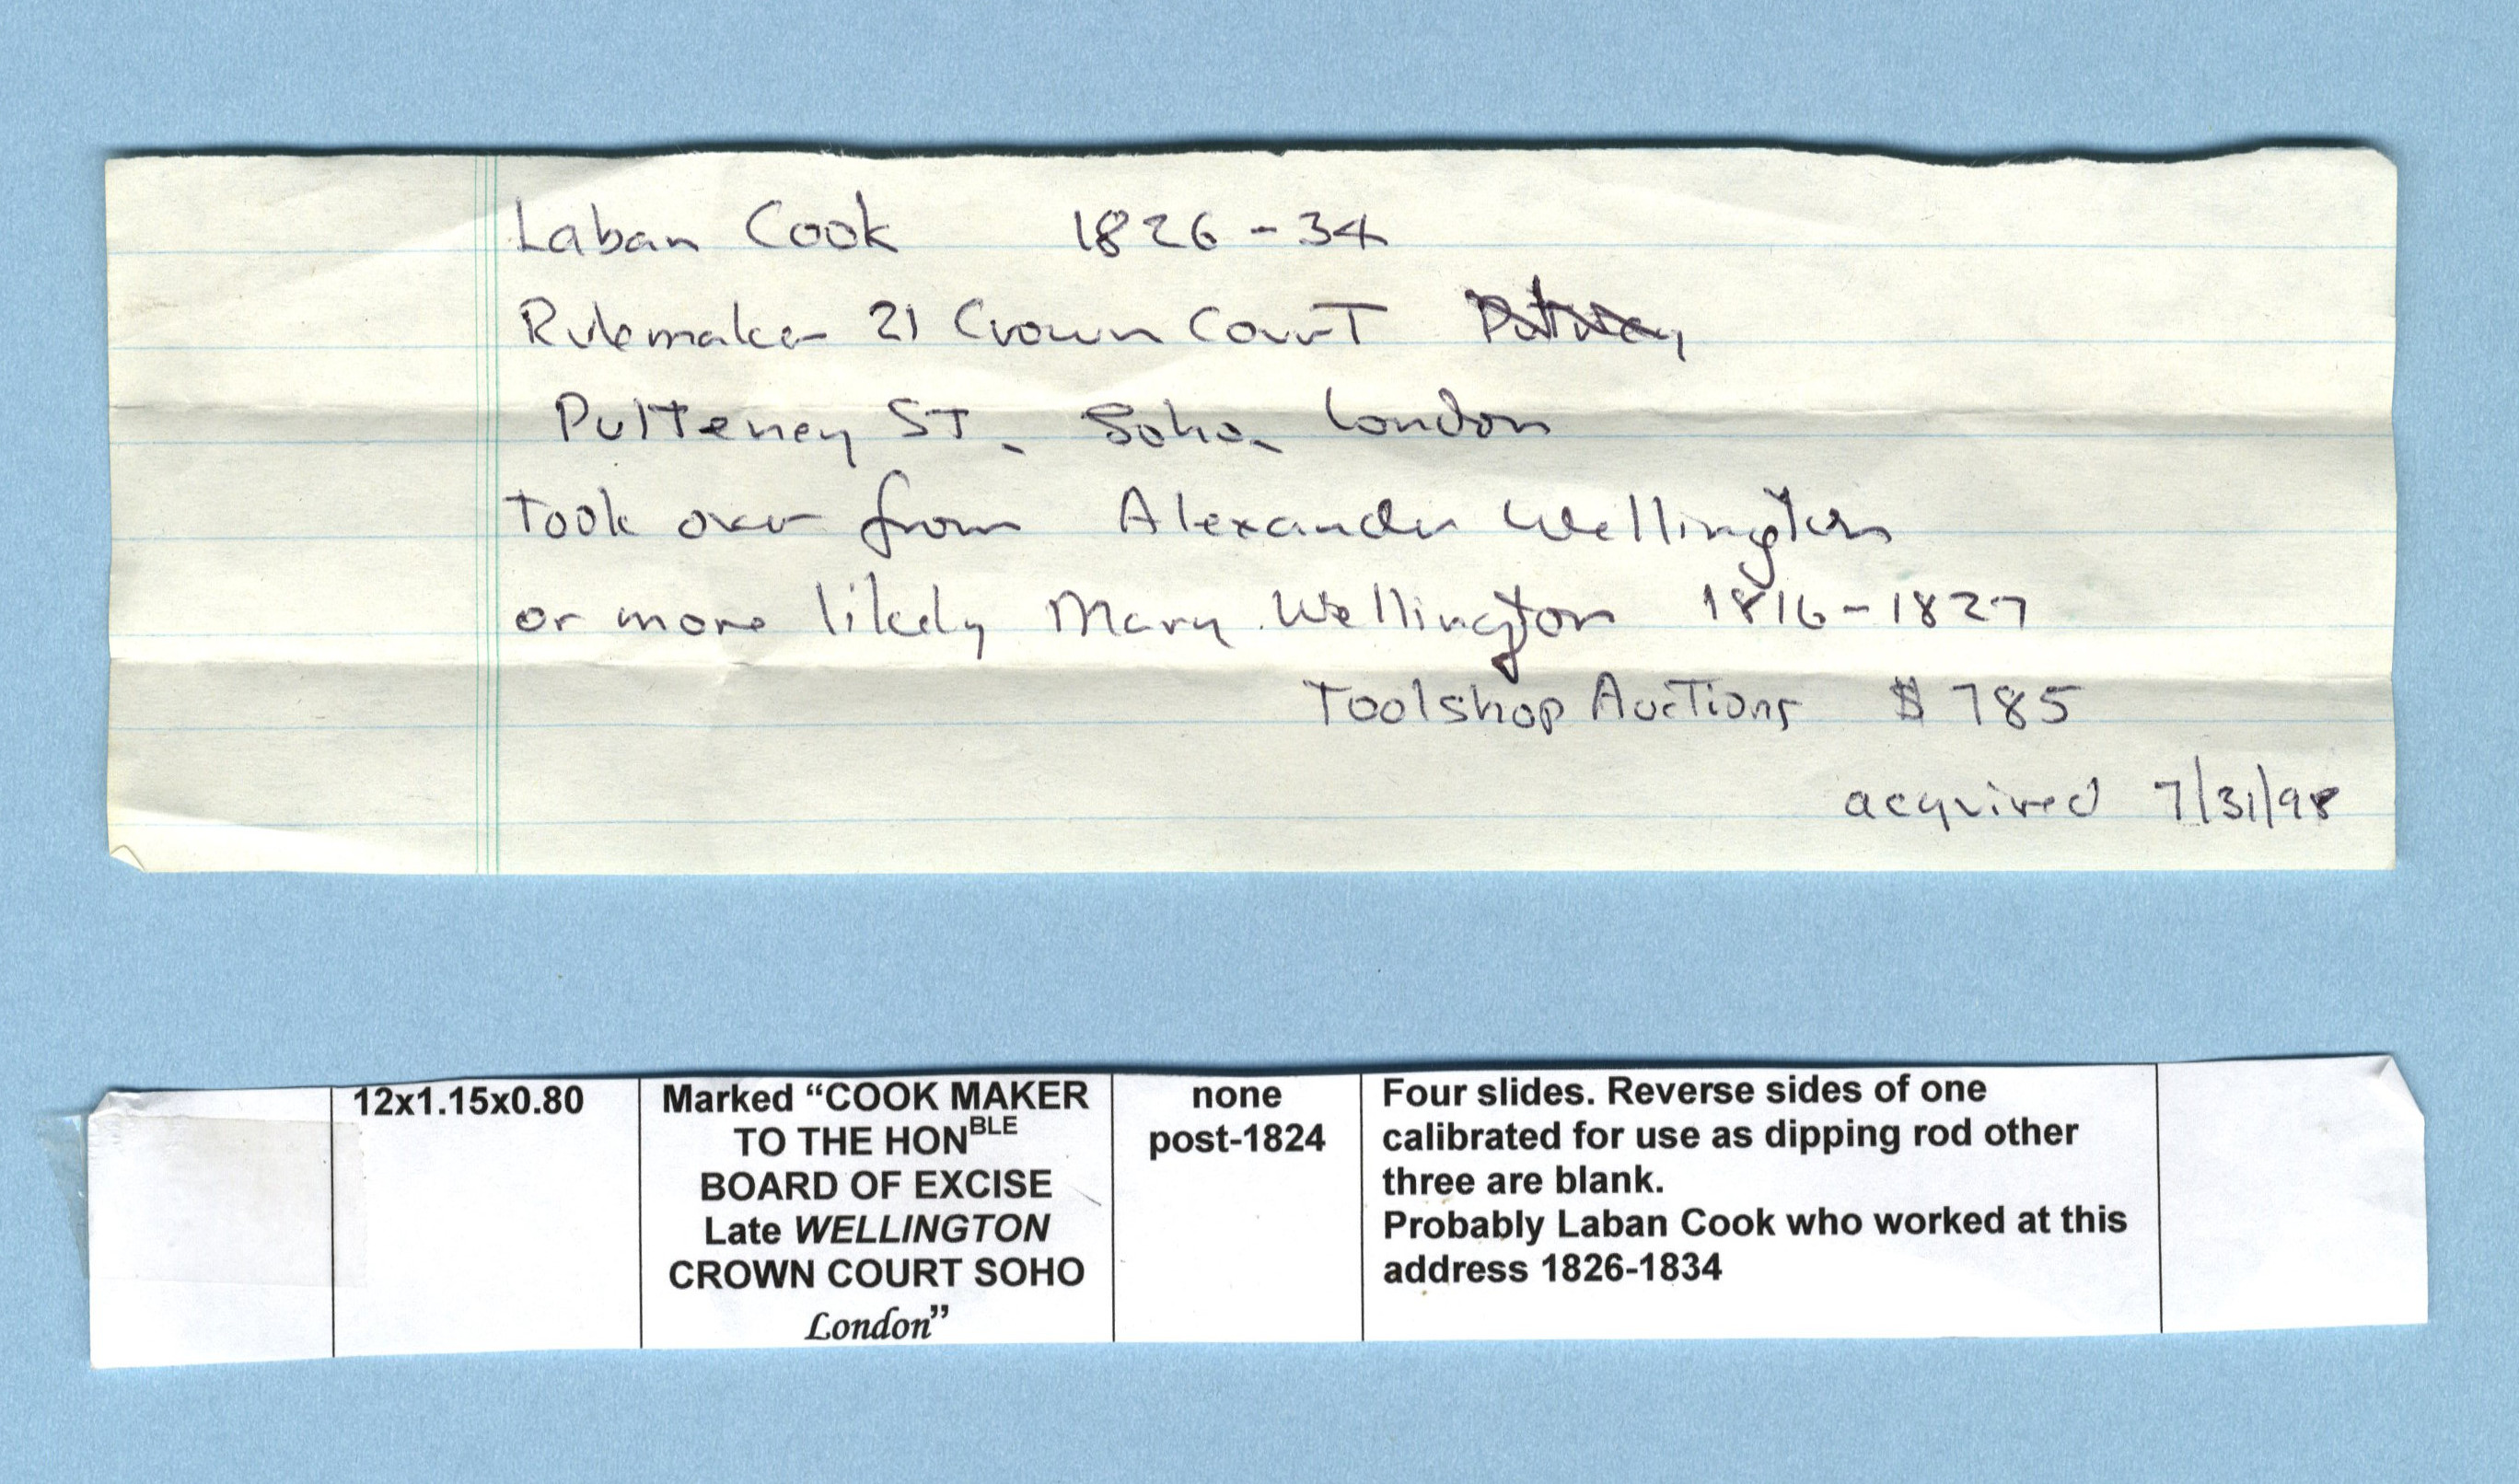 Laban Cook 1826-34
Rulemaker 21 Crown Court
Pulteney St, Soho, London
Took over from Alexander Wellington
or more likely Mary Wellington 1816-1827
Toolshop Auctions $785
acquired 7/31/98
12x1.15x0.80
Marked “COOK MAKER
TO THE HONBLE
BOARD OF EXCISE
Late WELLINGTON
CROWN COURT SOHO
London”
none
post-1824
Four slides. Reverse sides of one
calibrated for use as dipping rod other
three are blank.
Probably Laban Cook who worked at this
address 1826-1834